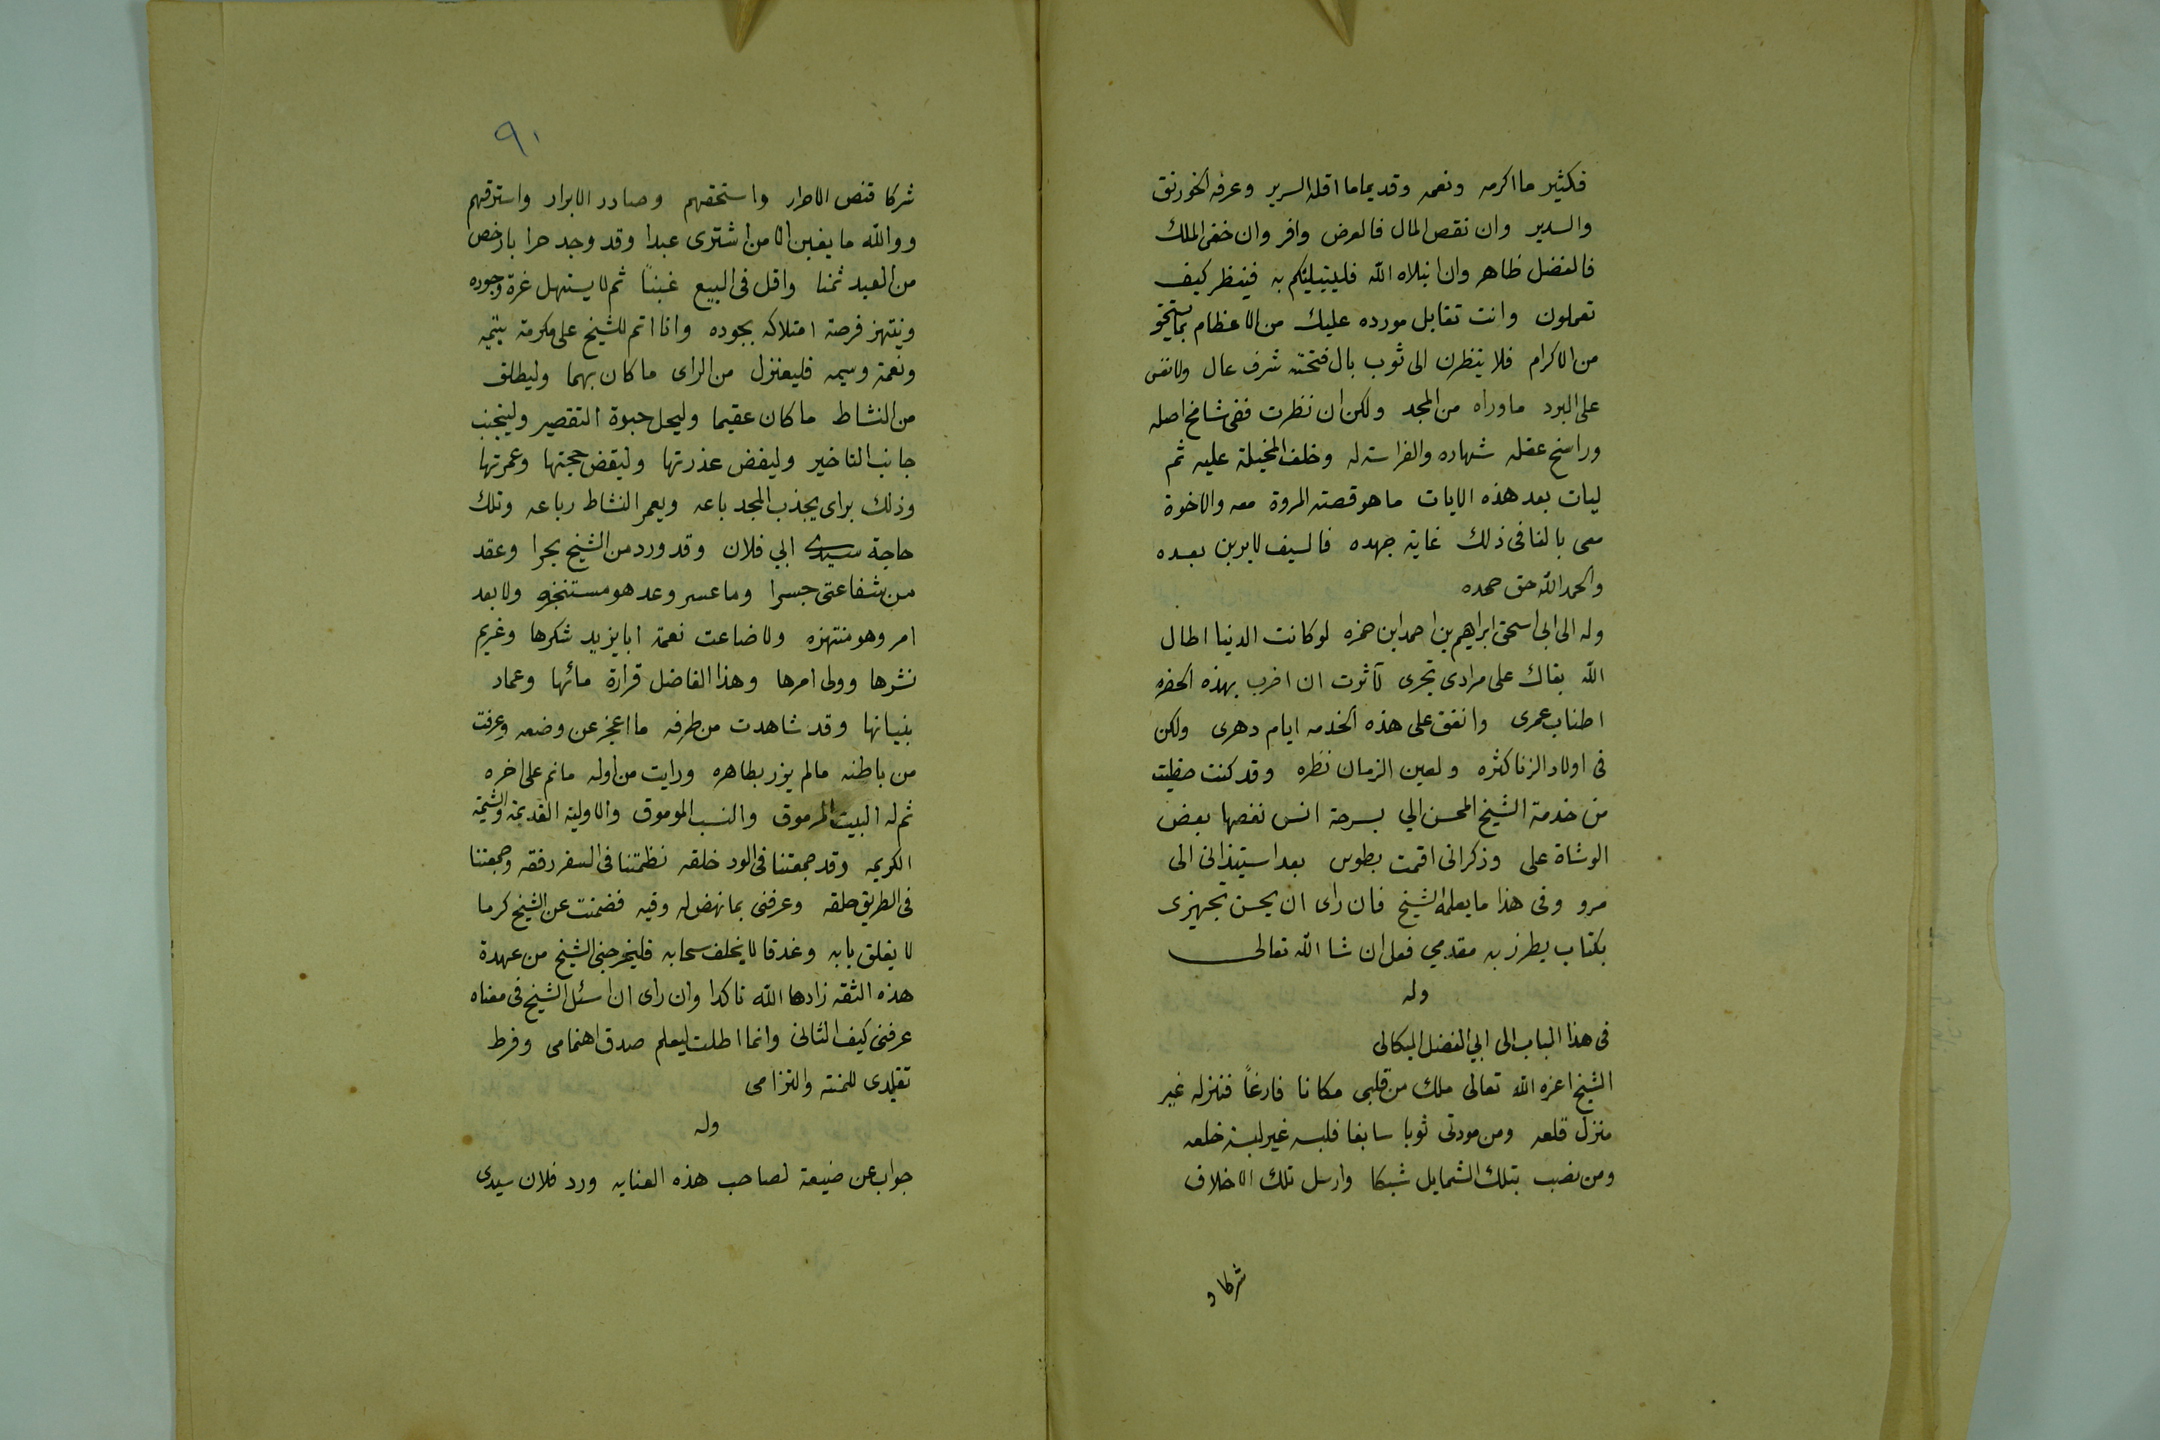 فكثير ما اكرمه ونعمه وقديما ما اقله السرير وعرفه الخورنق
والسدير وان نقص المال فالعرض وافر وان خفى الملك
فالفضل ظاهر وان ابتلاه الله فليبتليكم به فينظر كيف
تعملون وانت تقابل مورده عليك من الاعظام بما يستحق
من الاكرام فلا ينظرن الى ثوب بال فتحته شرف عال ولا تقس
على البرد ماوراه من المجد ولكن ان نظرت ففى شامخ اصله
وراسخ عقله شهاده والفراسته له وخلف المخيلة عليه ثم
ليات بعد هذه الايات ما هو قصته المروة معه والاخوة
معى بالغا فى ذلك غاية جهده فالسيف لا يرين بعمده
والحمد الله حق حمده
وله الى ابى اسحق ابراهيم بن احمد ابن حمزه لو كانت الدنيا اطال
الله بقاك على مرادى تجرى لآثرت ان اضرب بهذه الحضره
اطناب عمرى وانفق على هذه الخدمه ايام دهرى ولكن
فى اولاد الزنا كثره ولعين الزمان نظره وقد كنت حظيت
من خدمة الشيخ المحسن الي بسرحة انس نغصها بعض
الوشاة على وذكر انى اقمت بطوس بعد استيذانى الى
مرو وفى هذا ما يعلمه الشيخ فان راى ان يحسن تجهيزى
بكتاب يطرز به مقدمي فعل ان شا الله تعالى
وله
فى هذا الباب الى ابي الفضل الميكالى
الشيخ اعزه الله تعالى ملك من قلبى مكانا فارغاً فنزله غير
منزل قلعه ومن مودتى ثوبا سابغا فلبسه غير لبسة خلعه
ومن نصب بتلك الشمايل شبكا وارسل تلك الاخلاق
شركا و
٩٠
شركا قنص الاحرار واستحقهم وصادر الابرار واسترقهم
ووالله ما يغبن الا من اشترى عبدا وقد وجد حرا بارخص
من العبد ثمنا واقل فى البيع غبناً ثم لا يستهل غرة وجوده
وينتهز فرصة امتلاكه بجوده وانا اتم للشيخ على مكرمة يتيمه
ونعمة وسيمه فليعتزل من الراى ما كان بهما وليطلق
من النشاط ما كان عقيما وليحل حبوة التقصير وليتجنب
جانب التاخير وليفض عذرتها وليقض حجتها وعمرتها
وذلك براى يجذب المجد باعه ويعمر النشاط رباعه وتلك
حاجة سيدى ابي فلان وقد ورد من الشيخ بحرا وعقد
من شفاعتى جسرا وما عسر وعد هو مستنجزه ولا بعد
امر وهو منتهزه ولا ضاعت نعمة ابا يزيد شكرها وغريم
نشرها وولى امرها وهذا الفاضل قرارة مائها وعماد
بنيانها وقد شاهدت من ظرفه ما اعجز عن وضعه وعرفت
من باطنه مالم يزر بظاهره ورايت من اوله مانم على اخره
ثم له البيت المرموق والنسب الموموق والاولية القديمة والشيمة
الكريمه وقد جمعتنا فى الود خلقه نظمتنا فى السفر رفقه وجمعتنا
فى الطريق حلقه وعرفنى بما نهض له وفيه فضمنت عن الشيخ كرما
لا يغلق بابه وغدقا لا يخلف سحابه فليخرجنى الشيخ من عهدة
هذه الثقه زادها الله تاكدا وان راى ان اسئل الشيخ فى معناه
عرفنى كيف التانى وانما اطلت ليعلم صدق اهتمامى وفرط
تقليدى للمنته والتزامى
وله
جواب عن ضيعة لصاحب هذه العنايه ورد فلان سيدى